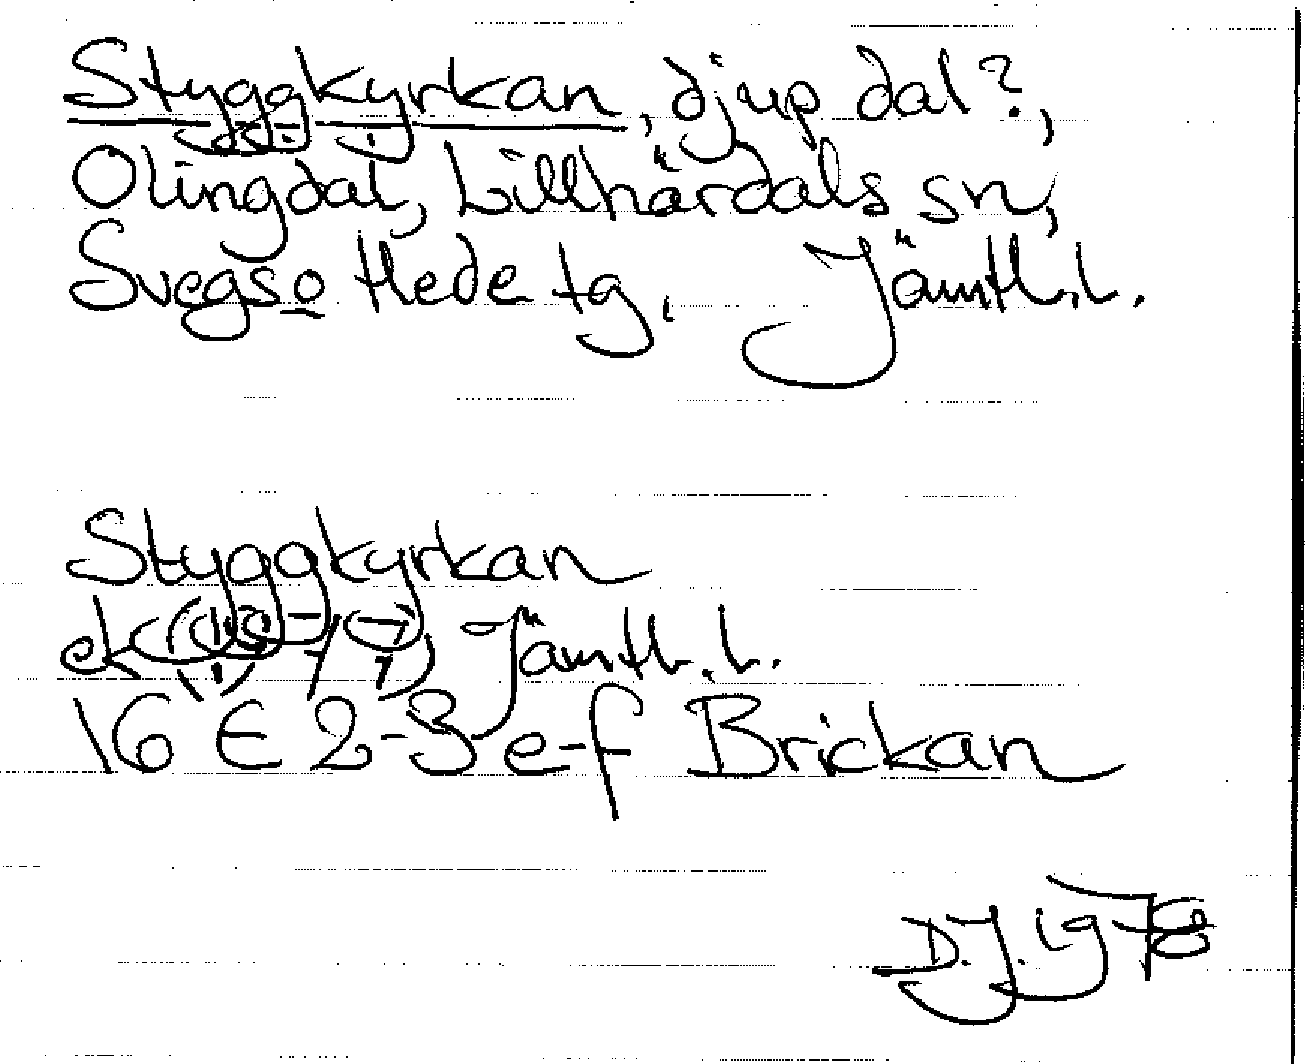 Styggkyrkan, djup dal?,
Olingdal, Lillhärdals sn,
Svegs o Hede tg. Jämtl. l.
Styggkyrkan
ek Jämtl. l.
16 E 2-3 e-f Brickan
D.J. 1978